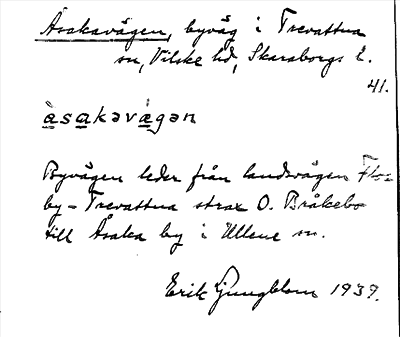 Åsakavägen, byväg i Trevattna
sn, Vilske hd, Skaraborgs l.
41.
å̀sakəvä́gən
Byvägen leder från landsvägen Flo-
by - Trevattna strax O. Bråkebo
till Åsaka by i Ullene sn.
Erik Ljungblom 1937.